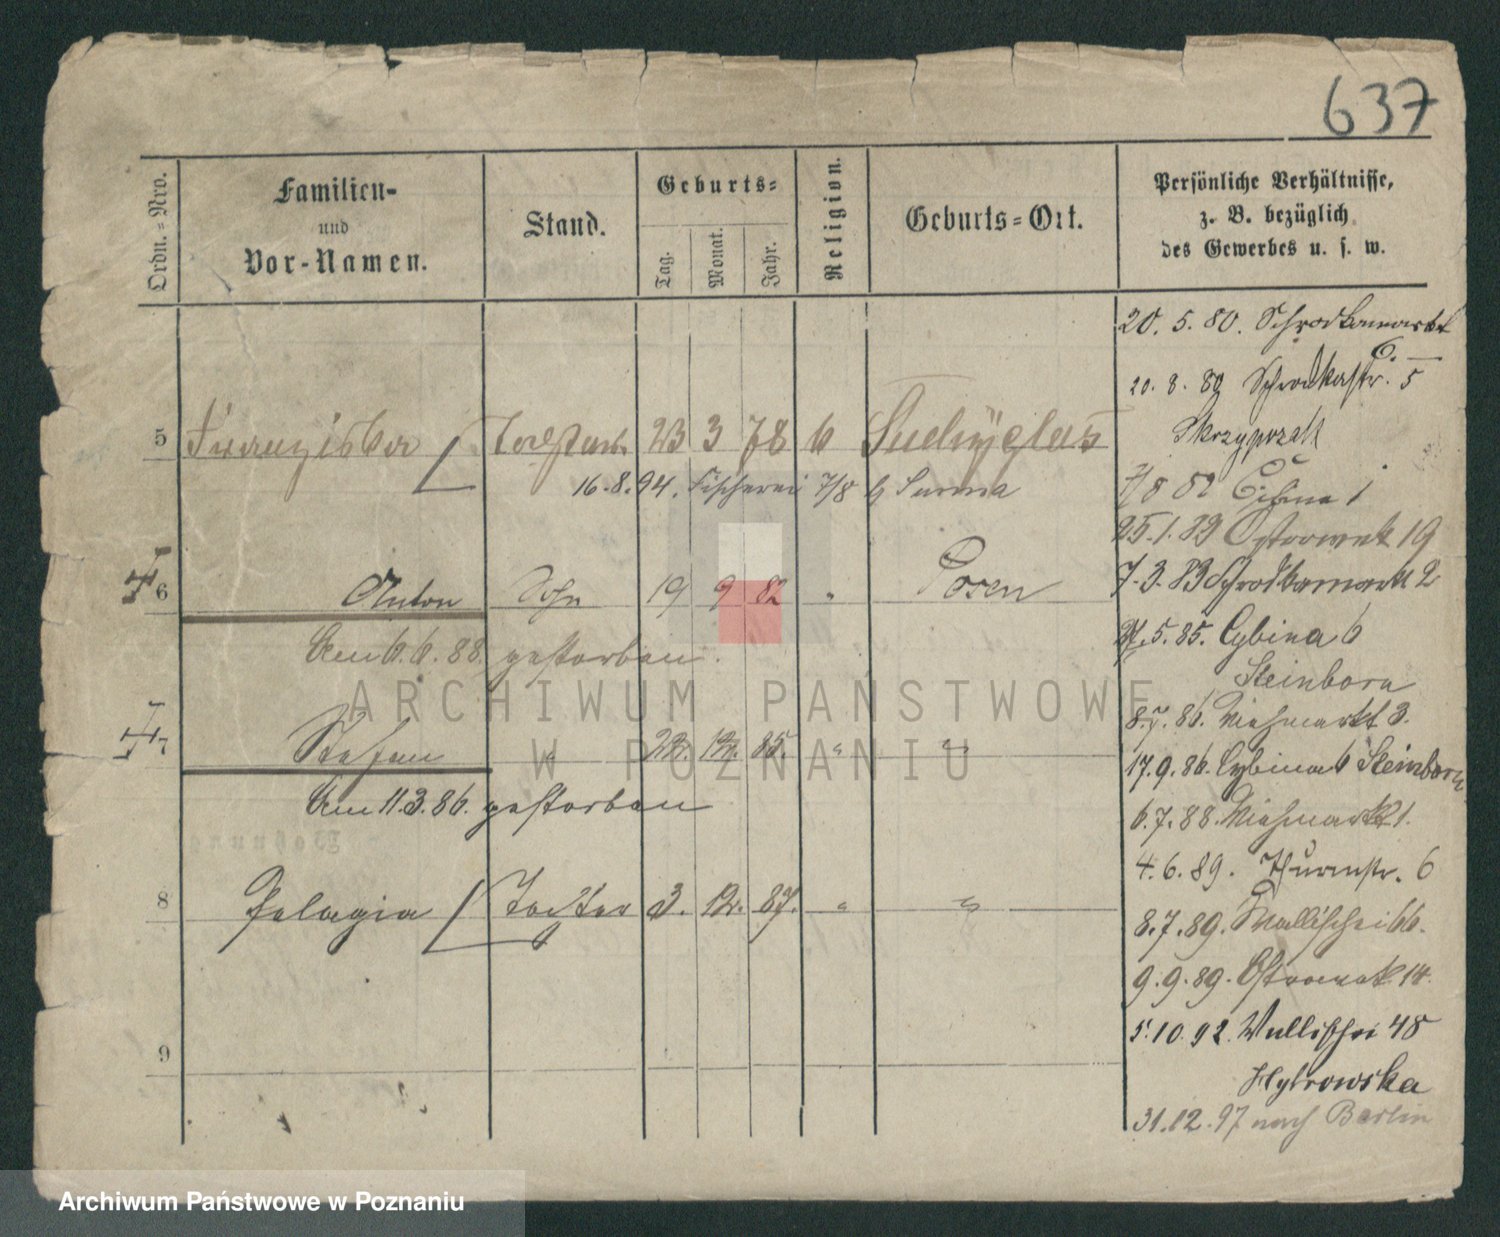 637
Ordn.-Nro.
Familien-
und
Vor-Namen.
Stand.
Geburts-
Tag.
Monat.
Jahr.
Religion.
Geburts-Ort.
Persönliche Verhältnisse,
z. B. bezüglich
des Gewerbes u. s. w.
20. 5. 80. Schrodkamarkt
6.
20. 8. 80 Schrodkastr. 5
5 Franziska Tochter 23 3 78
16.8.94. Fischerei 7/8 b
82 Cybina 1
25.1.83 Ostrowek 19
6 Anton Sohn 19 9 82 " Posen
7.3.83 Schrodkamarkt 2
5.85. Cybina 6
Am 6.6.88. gestorben.
Steinborn
ARCHIWUM PAŃSTWOWE
W POZNANIU
8.7.86. Viehmarkt 3.
7 Stefan " 22. 12. 85. " "
17.9.86. Cybina 6 Steinborn
Am 11.3.86. gestorben
6.7.88. Viehmarkt 1.
4.6.89. Thurmstr. 6
8 Pelagia Tochter 3. 12. 87. " "
8.7.89. Wallischei 66.
9.9.89. Ostrowek 14.
5.10.92. Wallischei 48
9
31.12.97 nach Berlin
Archiwum Państwowe w Poznaniu